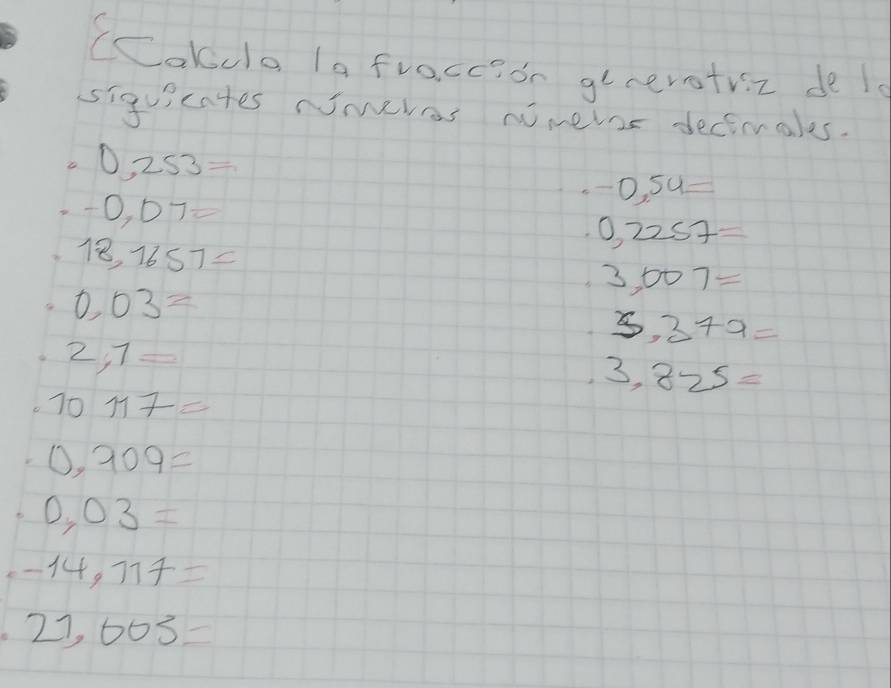 Calcula la fracción generatriz de lo
siguientes números números decimales.
. 0,253=
. -0,01=
. 18,1651=
. 0,03=
. 2,1=
. 10 117=
. 0,909=
. 0,03=
. -14,117=
. 21,003=
. -0,54=
. 0,2257=
. 3,001=
. 5,379=
. 3,825=